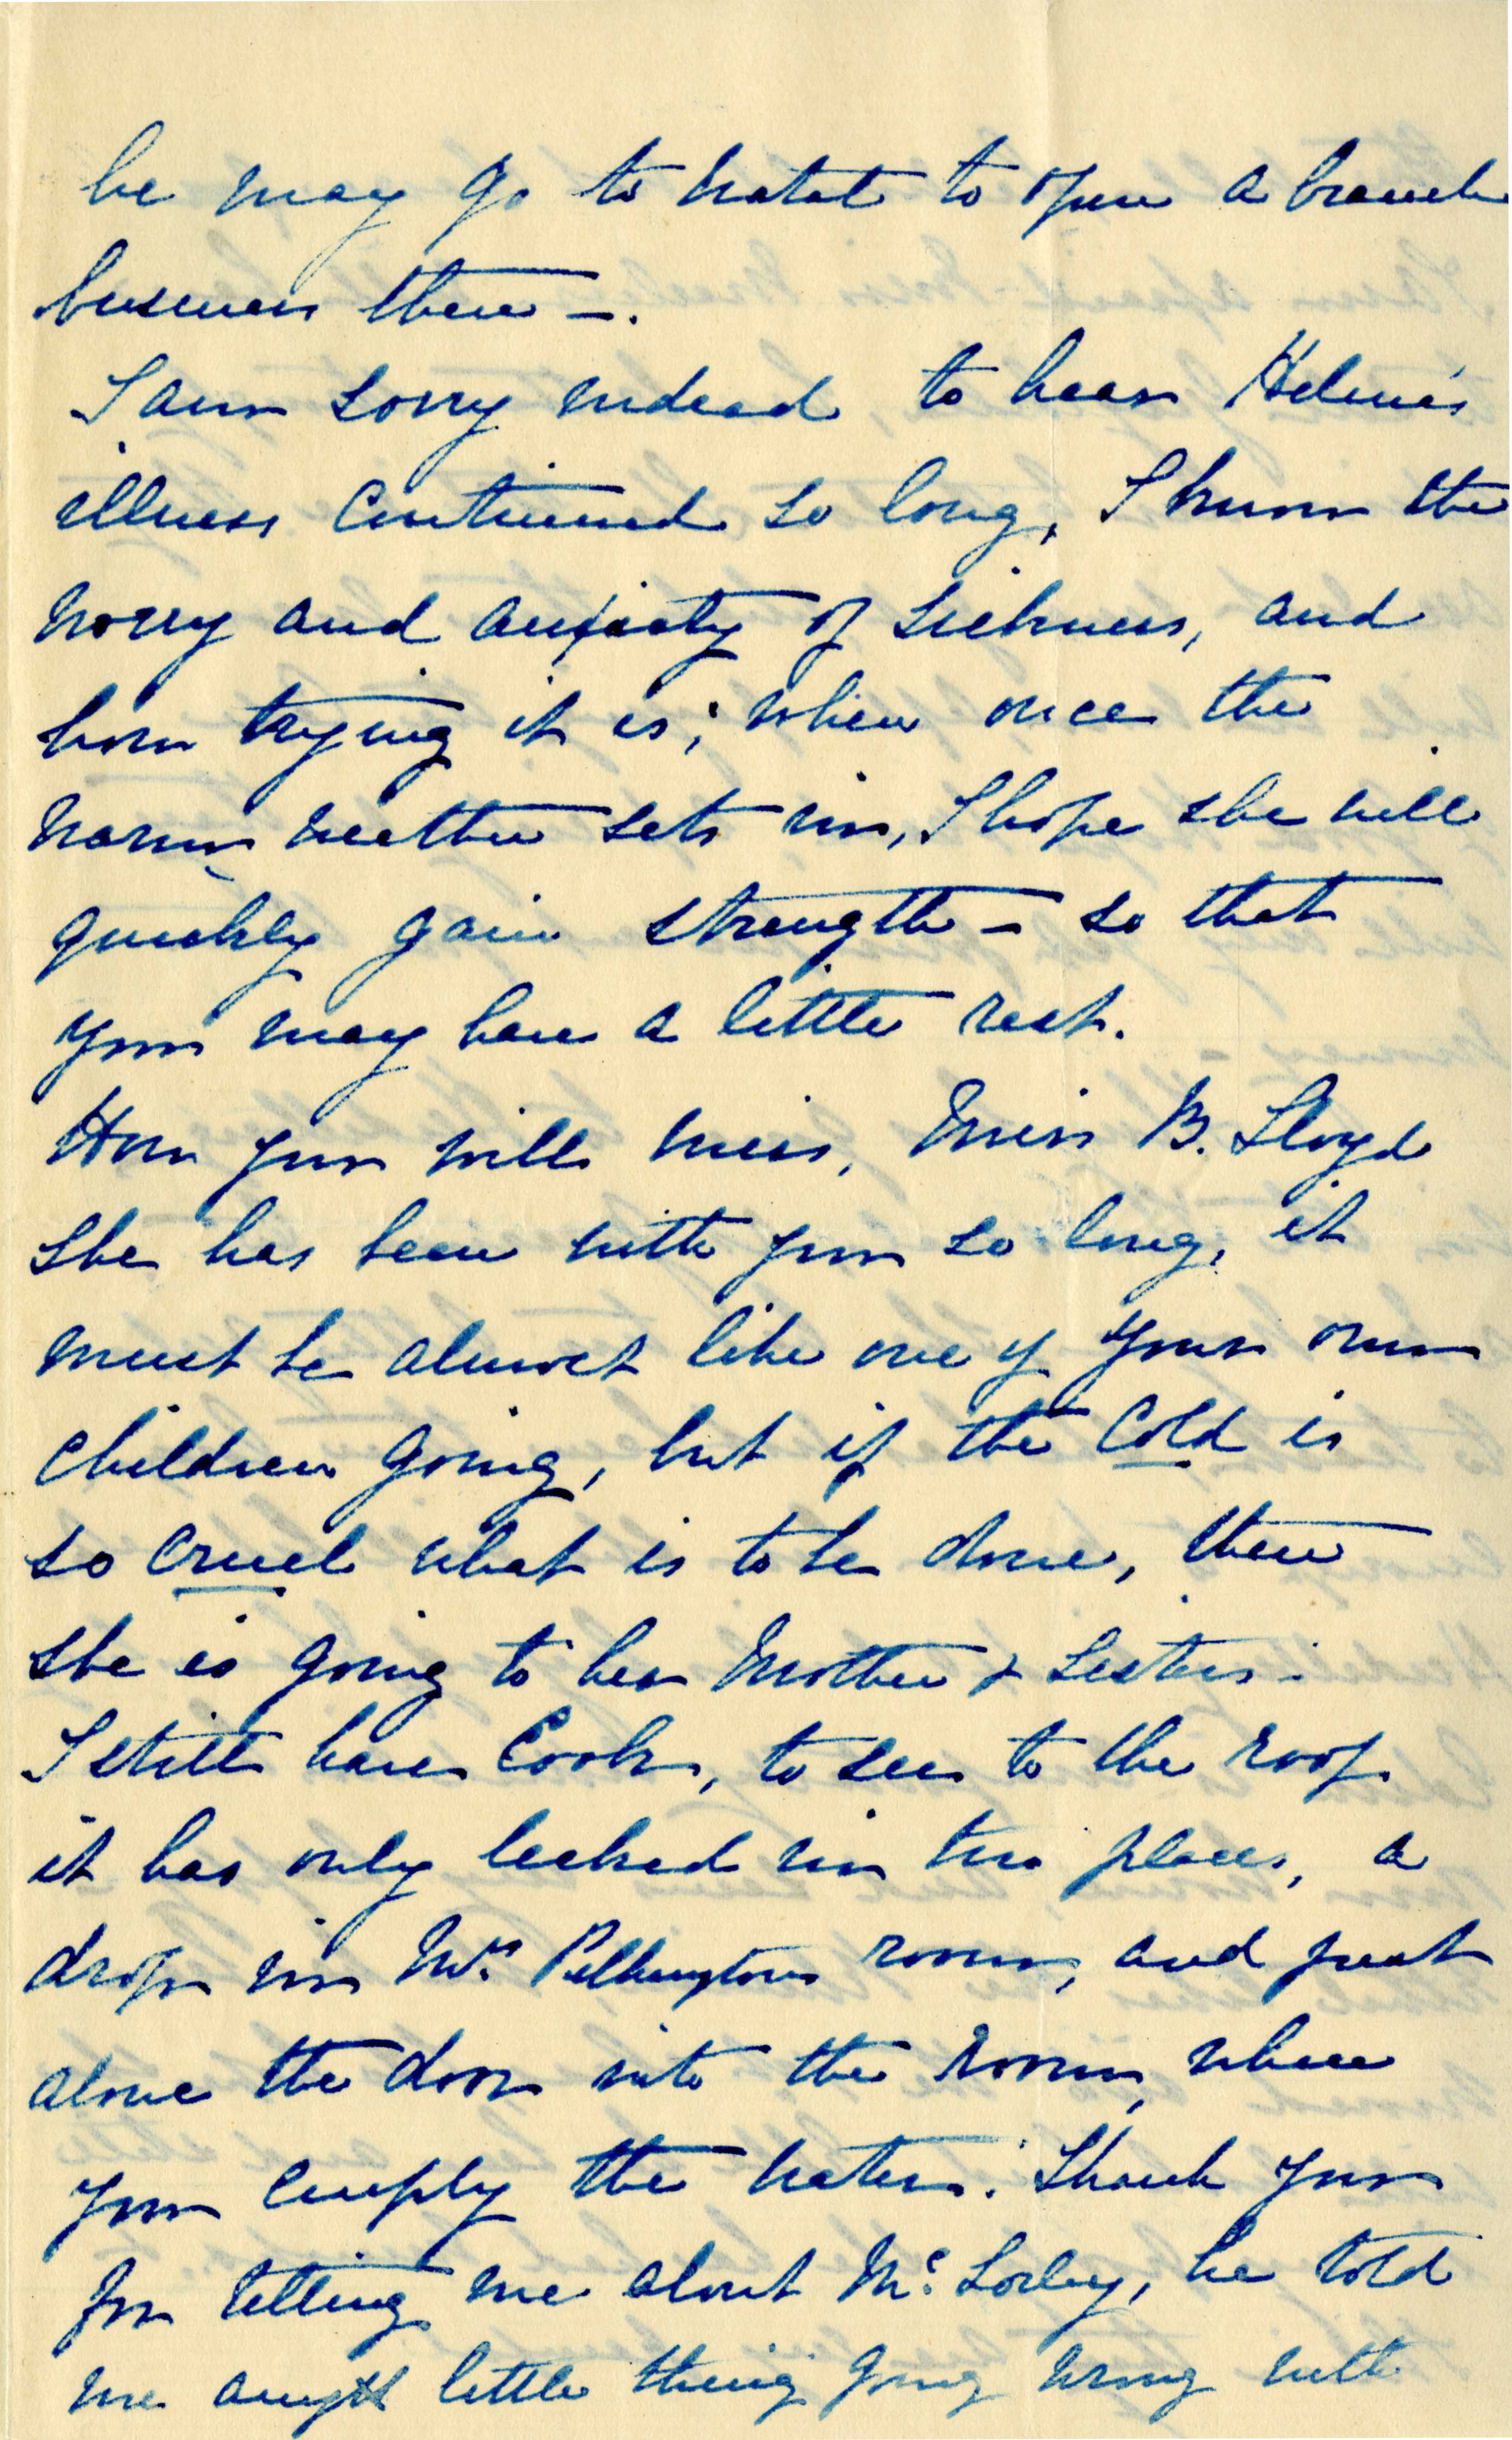 he may go to Natal to open a branch
business there —.
I am sorry indeed to hear Helen's
illness continued so long, I know the
worry and anxiety of sickness, and
how trying it is; when once the
warm weather sets in, I hope she will
quickly gain strength — so that
you may have a little rest.
How you will miss, Miss B. Lloyd
she has been with you so long, it
must be almost like one of your own
children going, but if the cold is
so cruel what is to be done, then
she is going to her Mother & Sisters.
I still have Cook, to see to the roof.
it has only leaked in two places, a
drop in Mrs. Pilkingtons room, and just
above the door into the room, where
you empty the water. Thank you
for telling me about Mc. Sorley, he told
me any little thing going wrong with